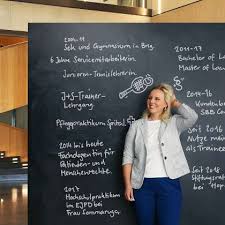 2004-11
Sek und Gymnasium in Brig
6 Jahre Servicemitarbeiterin
Juniorin-Tennislehrerin
J+S-Trainer-
Lehrgang
Pflegepraktikum Spital
2014 bis heute
Fachdelegierte für
Patienten- und
Menschenrechte
2017
Hochschulpraktikum
im EJPD bei
Frau Sommaruga
2011-17
Bachelor of
Master of Law
2014-16
Kundenber
SBB Con
Nutze mein
als Traine
Seit 2018
Stiftungsrat
bei "Hop